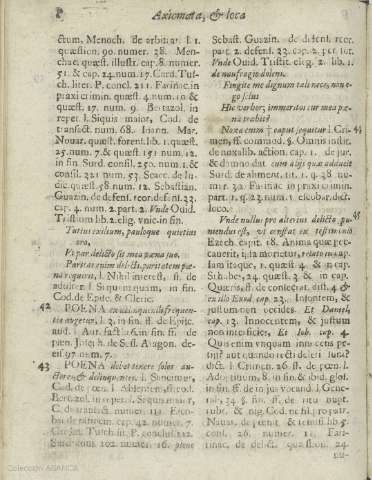 8 Axiomata, & loca
ctum, Menoch. de arbitrar. l. 1.
quæstion. 90. numer. 38. Men-
chac. quæst. illustr. cap. 8. numer.
51. & cap. 24. num. 17. Card. Tus-
ch. liter. P. concl. 211. Farinac. in
praxi crimin. quæst. 4. num. 10. &
quæst. 17. num. 9. Bertazol. in
repet l. Siquis maior, Cod. de
transact. num. 68. Ioann. Mar.
Nouar. quæst. forens. lib. 1. quæst.
25. num. 7. & quæst 151. num. 12.
in fin. Surd. consil. 250. num. 1. &
consil. 321 num. 53. Scacc. de Iu-
dic. quæst. 58. num. 12. Sebastian.
Guazin. de defens. reor. defens. 33.
cap. 4. num. 2. part. 2. Vnde Ouid.
Tristium lib. 2. elig. vnic. in fin.
Tutius exilium, pauloque quietius
oro,
Vt par delicto sit mea pæna suo.
Paritas enim delicti, paritatem pæ-
næ requirit, l. Nihil interest, ff. de
adulter. l. Siquemquam, in fin.
Cod. de Episc. & Cleric.
42 POENA
augetur, l. 3. in fin. ff. de Episc.
aud. l. Aut facta, in fin. ff. de
pœn. Joseph. de Sess. Aragon. de-
cis. 97. num. 7.
43 POENA debet tenere solos auc-
tores, & delinquentes, l. Sancimus,
Cod. de pœn.
Bertazol. in repet. l. Siquis maior,
num. 151.
cap. 42. num. 7.
Tusch. lit. P. conclus. 212.
Surd. cons. 102. num. 16. plene
Sebast. Guazin. de defens. reor.
part. 2. defens. 33. cap. 2. per tot.
Vnde Ouid. Tristit. eleg. 2. lib. 1.
de naufragio dolens.
Fingite me dignum tali nece, non e-
go solus
Hic vehor; immeritos cur mea pæ-
na trahit?
Noxa enim caput sequitur l. Cri- 44
men, ff. commod. §. Omnis inditæ.
de noxalib. action. cap. 1. de iur.
& damno dat. cum alijs quæ adducit
Surd. de aliment. tit. 1. q. 38. nu-
mer. 32. Farinac. in praxi crimin.
part. 1. q. 23. num. 1. Escobar. dict.
loco.
Vnde nullus pro alterius delicto, pu- 45
niendus est, vt constat ex testimonio
Ezech. capit. 18. Anima quæ pec-
cauerit, ipsa morietur, relato in cap.
Iam itaque, 1. quæst. 4. & in cap.
Si habes, 24. quæst. 3. & in cap.
Quæris, ff. de consecrat. dist. 4. &
ex illis Exod. cap. 23. Insontem, &
iustum non occides. Et Daniel,
cap. 13. Innocentem, & iustum
non interficies, Et Iob. cap. 4.
Quis enim vnquam innocens pe-
rijt? aut quando recti deleti sunt?
dict. l. Crimen, 26. ff. de pœn. l.
Adoptiuum, 8. in fin. & ibid. glos.
in fin. ff. de in ius vocand. l. Gene-
rali, 34. §. fin. ff. de ritu nupt.
iube. & tig. Cod. ne fil. pro patr.
Nauar. de pœnit. & remiss. lib. 5.
cons. 26. num. 11. Fari-
inac. de delict. quæstion. 24
nu-
Colección AGANCA